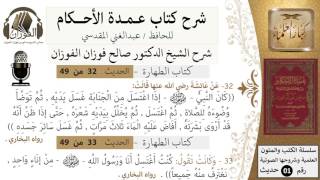 شرح كتاب عمدة الأحكام
للحافظ / عبدالغني المقدسي
شرح الشيخ الدكتور صالح فوزان الفوزان
كتاب الطهارة - الحديث 32 من 49
32- عَنْ عَائِشَةَ رضي الله عنها قَالَتْ:
((كَانَ النَّبِيُّ - ﷺ - إِذَا اغْتَسَلَ مِنَ الْجَنَابَةِ غَسَلَ يَدَيْهِ , ثُمَّ تَوَضَّأَ
وُضُوءَهُ لِلصَّلَاةِ , ثُمَّ اغْتَسَلَ , ثُمَّ يُخَلِّلُ بِيَدَيْهِ شَعْرَهُ , حَتَّى إِذَا ظَنَّ أَنَّهُ
قَدْ أَرْوَى بَشَرَتَهُ , أَفَاضَ عَلَيْهِ الْمَاءَ ثَلَاثَ مَرَّاتٍ , ثُمَّ غَسَلَ سَائِرَ جَسَدِهِ ))
رواه البخاري .
كتاب الطهارة - الحديث 33 من 49
33 - وَكَانَتْ تَقُولُ: كُنْتُ أَغْتَسِلُ أَنَا وَرَسُولُ اللَّهِ - ﷺ - مِنْ إِنَاءٍ وَاحِدٍ ,
نَغْتَرِفُ مِنْهُ جَمِيعاً)) . رواه البخاري .
الفوزان
سلسلة الكتب والمتون
العلمية وشروحها الصوتية
رقم 01 حديث